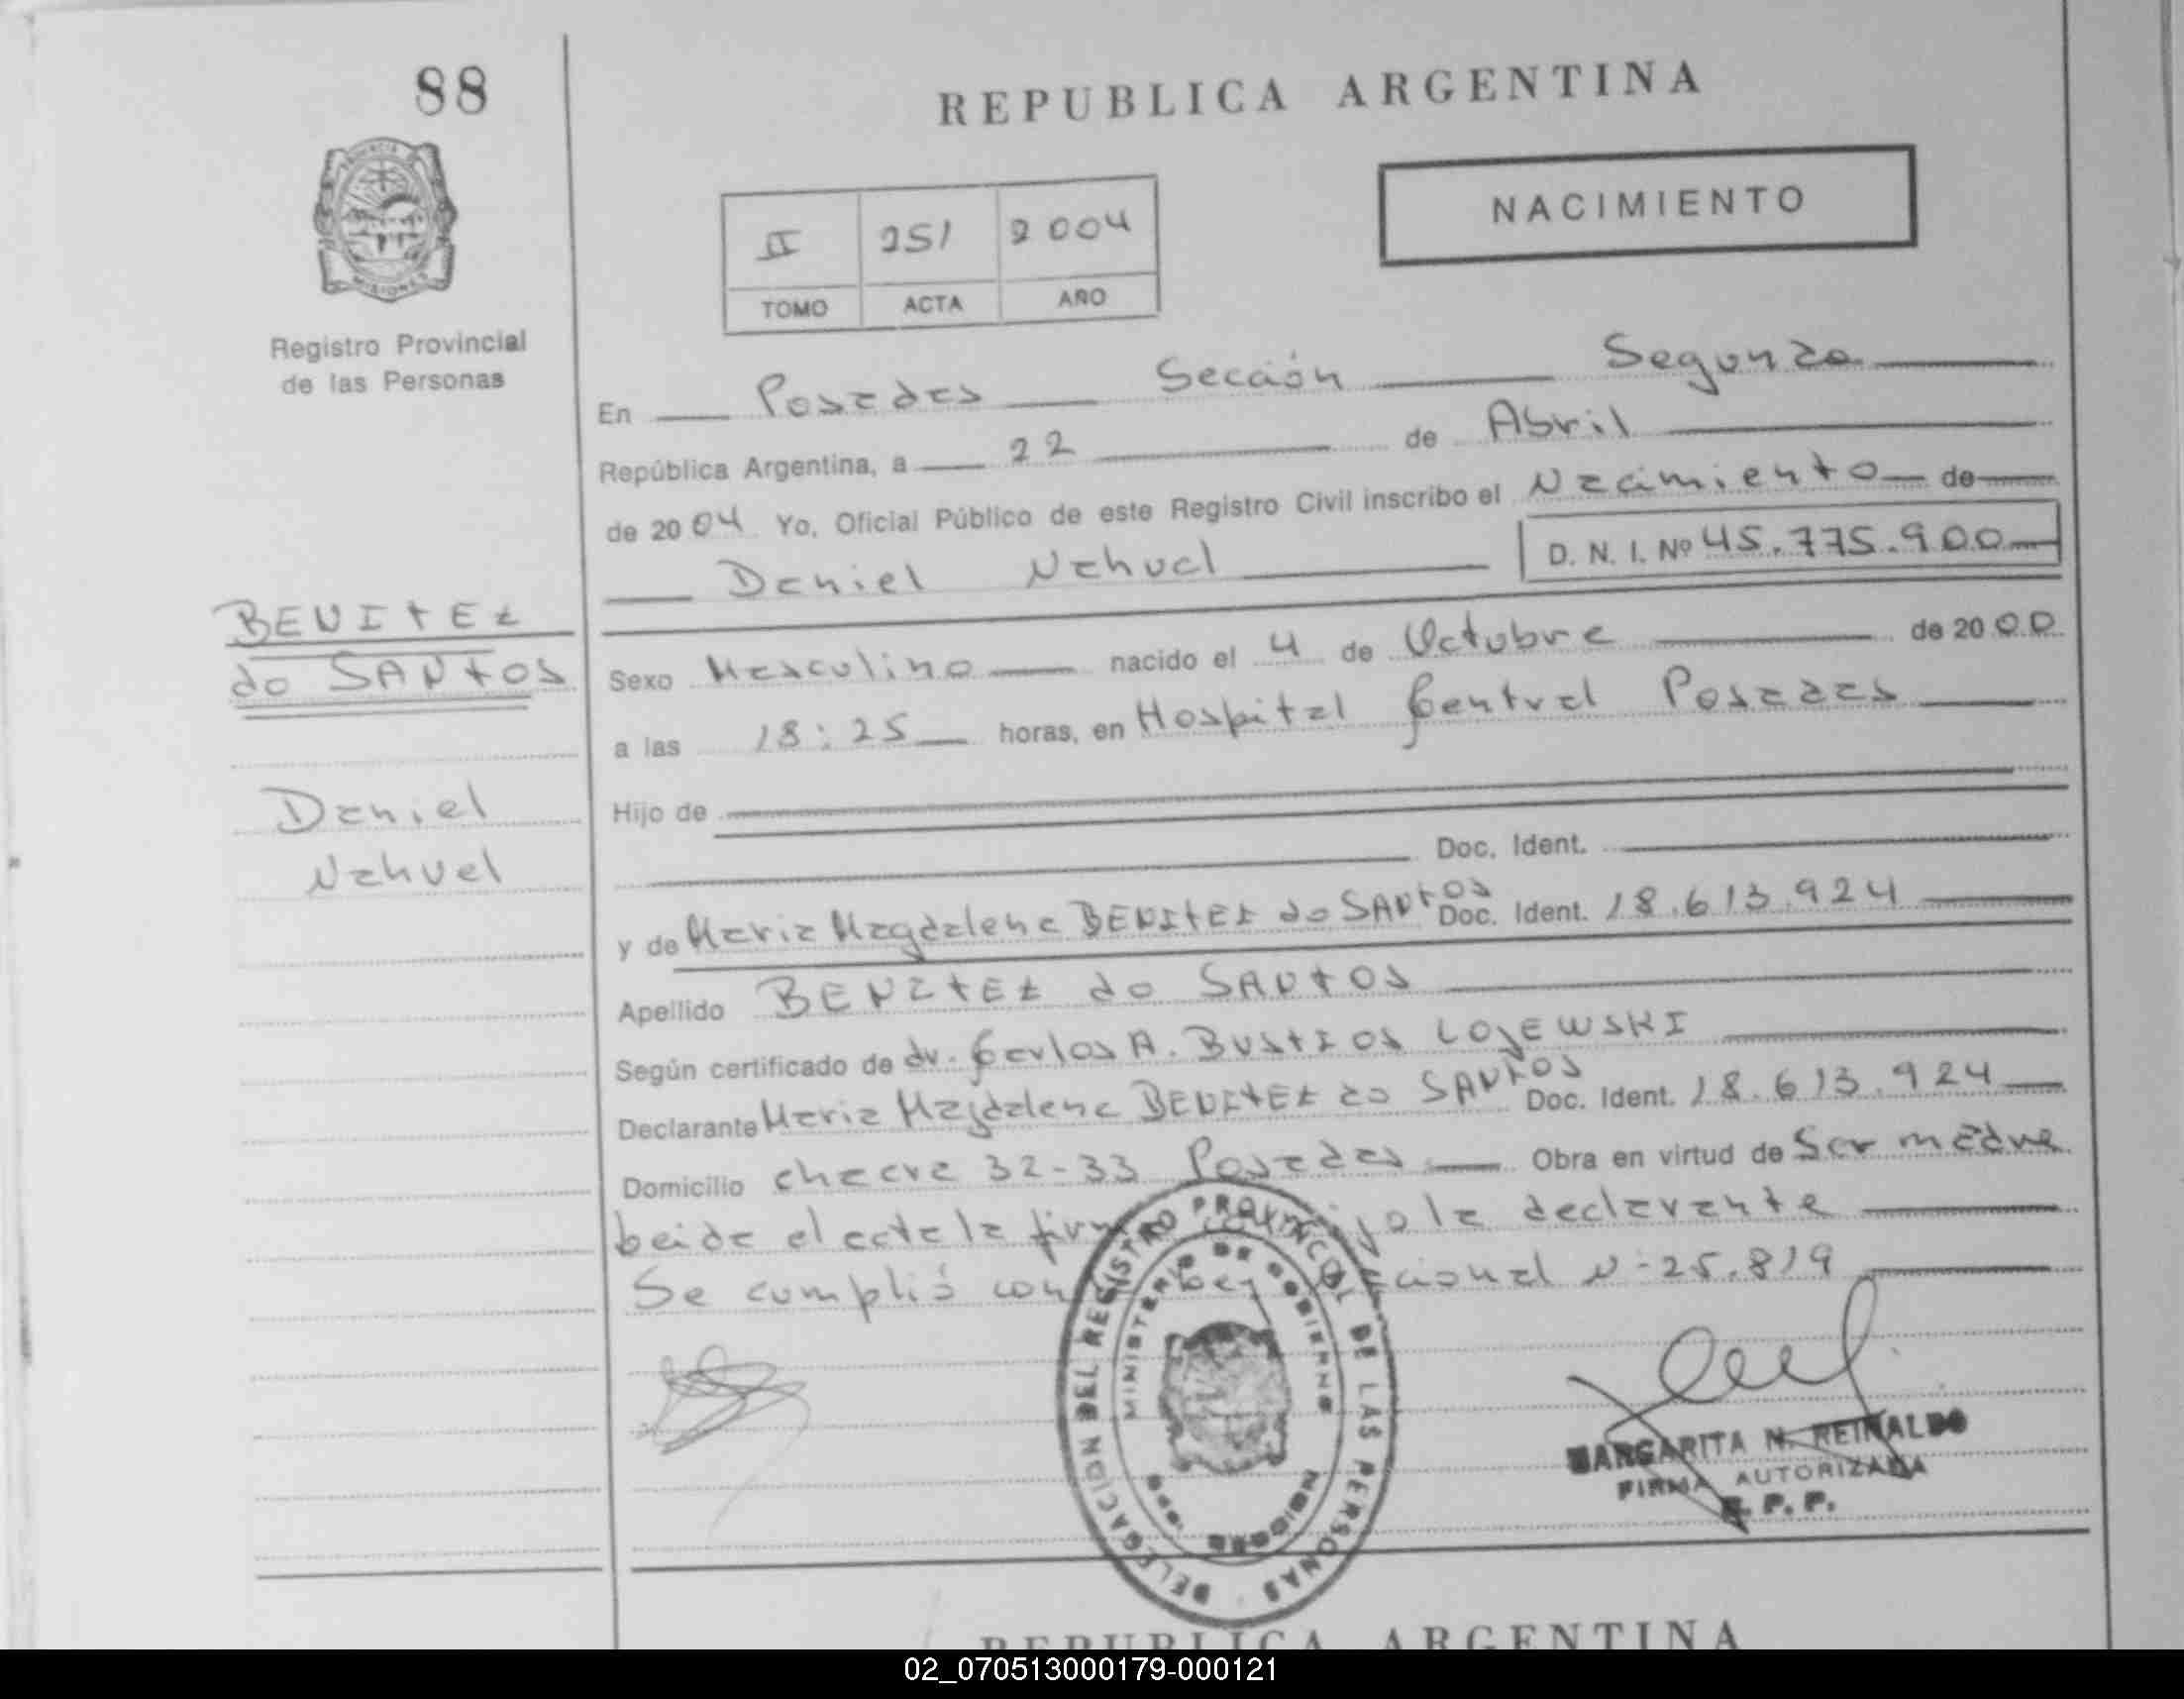 88
REPUBLICA ARGENTINA
NACIMIENTO
II 251 2004
TOMO ACTA AÑO
PROVINCIA
MISIONES
Registro Provincial
de las Personas
En Posadas Sección Segunda
República Argentina, a 22 de Abril
de 2004 Yo, Oficial Público de este Registro Civil inscribo el Nacimiento de
Daniel Nahuel D. N. I. Nº 45.775.900
BENITEZ
do SANTOS
Daniel
Nahuel
Sexo Masculino nacido el 4 de Octubre de 2000
a las 18:25 horas, en Hospital Central Posadas
Hijo de
Doc. Ident.
y de Maria Magdalena BENITEZ do SANTOS Doc. Ident. 18.613.924
Apellido BENITEZ do SANTOS
Según certificado de dr. Carlos A. BUSTIOS LOJEWSKI
Declarante Maria Magdalena BENITEZ do SANTOS Doc. Ident. 18.613.924
Domicilio chacra 32-33 Posadas Obra en virtud de Ser madre
leida el acta la declarante
Se cumplió con N-25.819
DELEGACION DEL REGISTRO PROVINCIAL DE LAS PERSONAS
MINISTERIO DE GOBIERNO
MISIONES
MARGARITA N. REINALDO
FIRMA AUTORIZADA
R. P. P.
REPUBLICA ARGENTINA
02_070513000179-000121